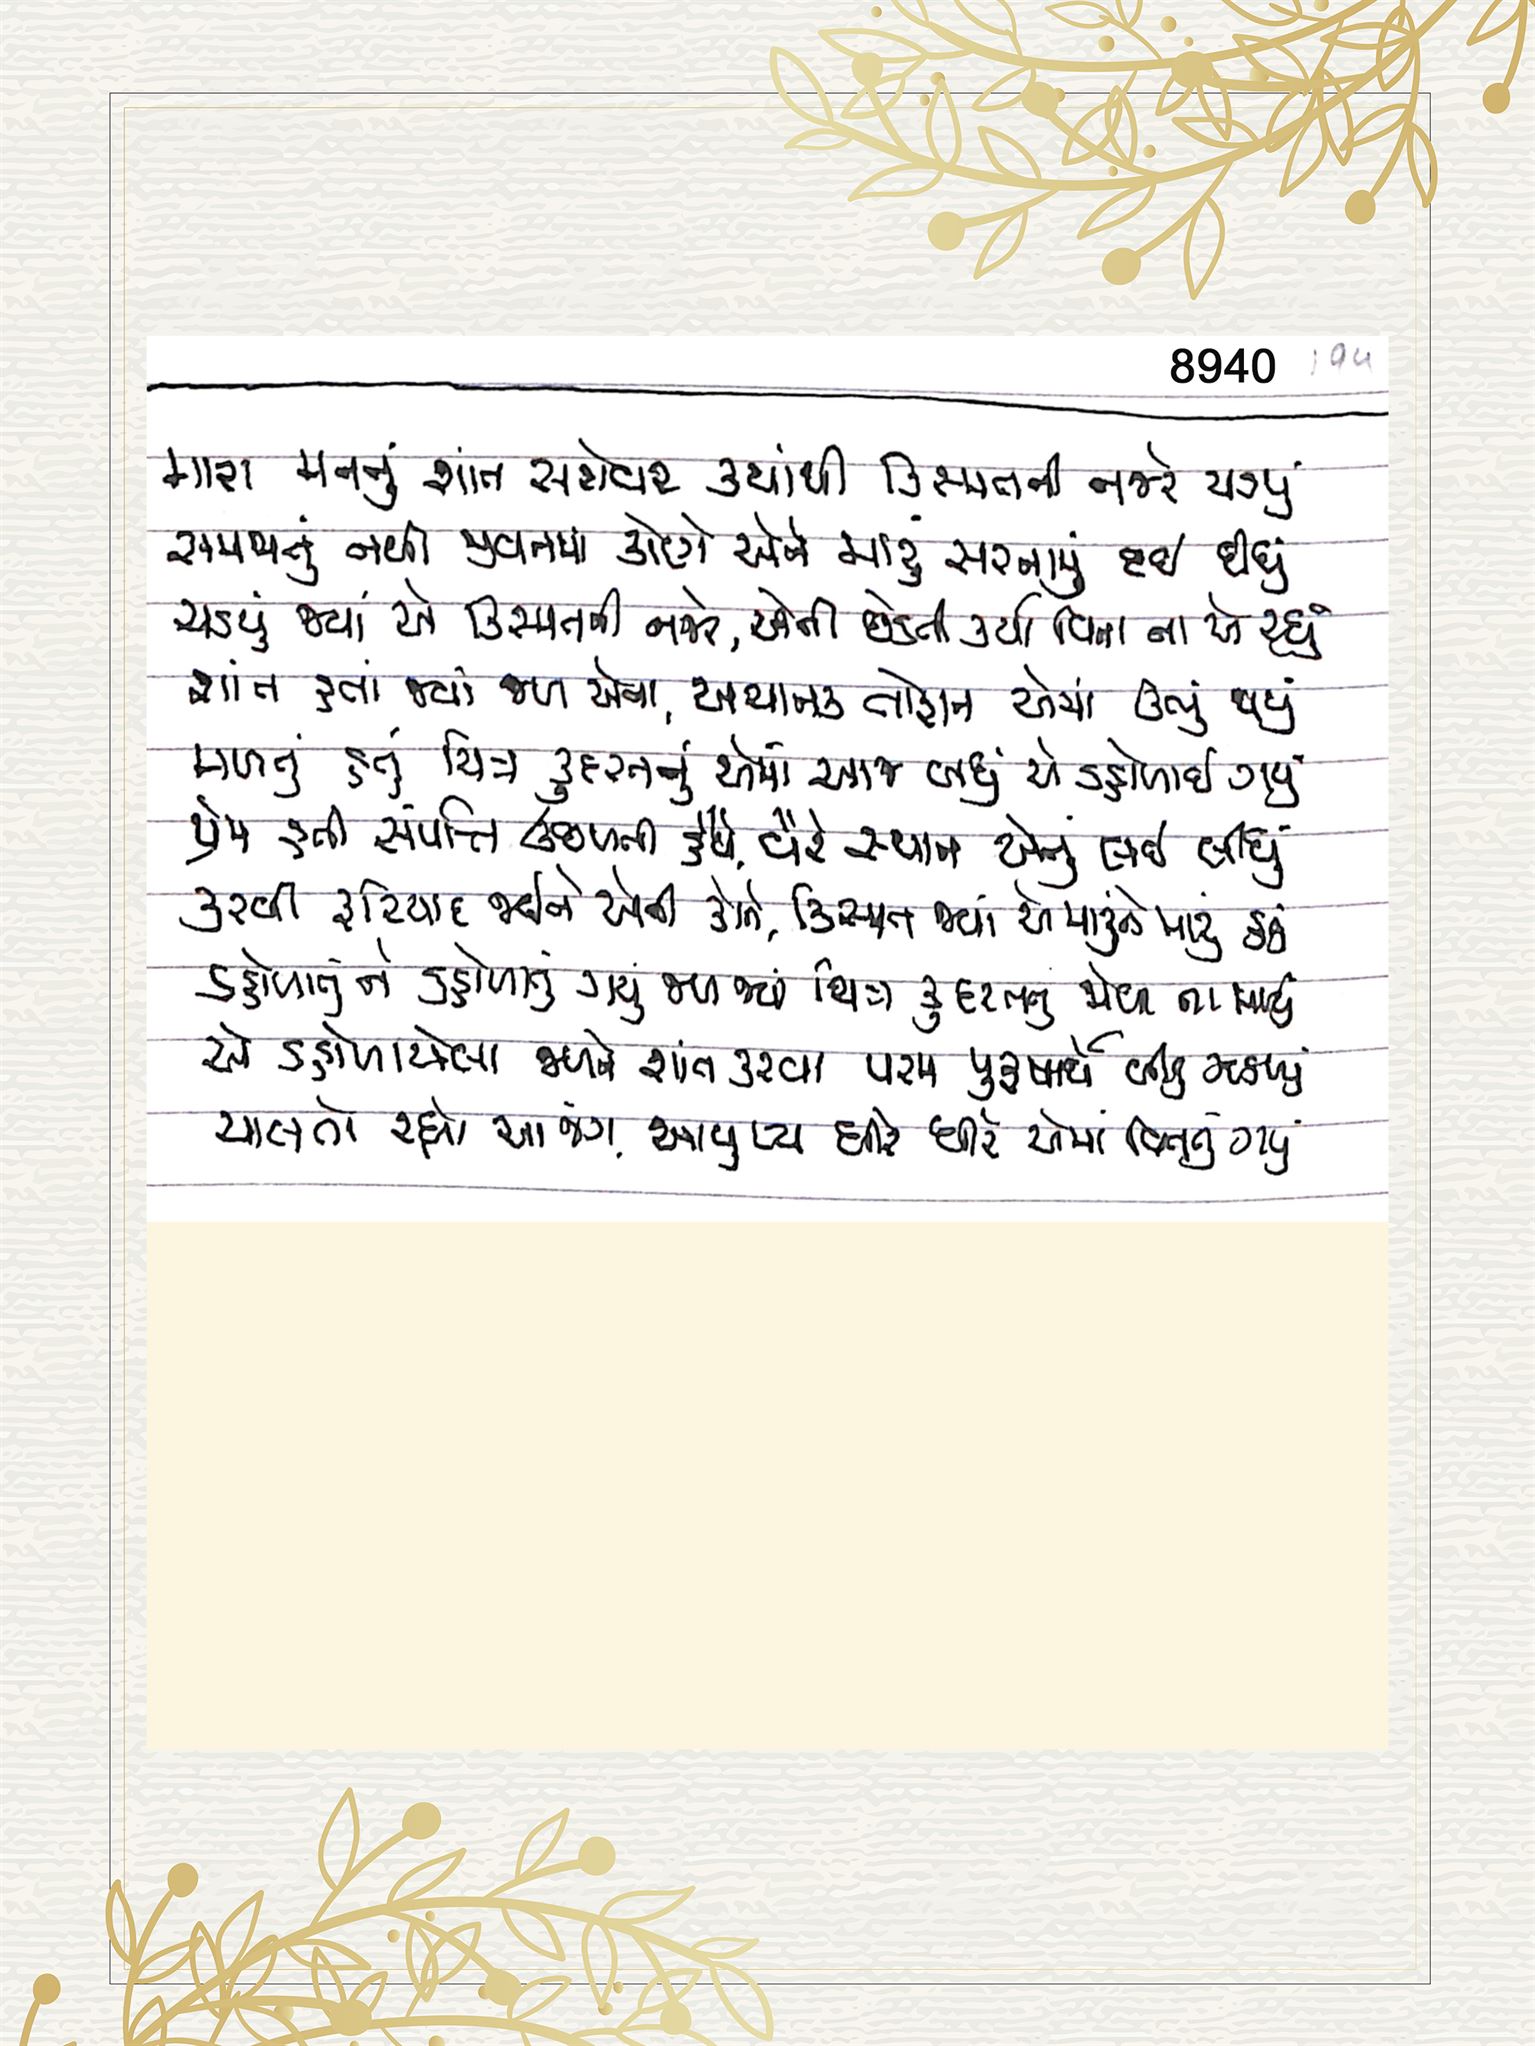 8940
૧૫
મારા મનનું શાંત સરોવર ક્યાંથી કિસ્મતની નજરે ચડયું
સમજાતું નથી જીવનમાં કોણે એને મારું સરનામું દઈ દીધું
ચડયું જ્યાં એ કિસ્મતની નજરે, એની છેડતી કર્યા વિના ના એ રહ્યું
શાંત હતાં જ્યાં જળ એના, અચાનક તોફાન એમાં ઉભું થયું
મળતું હતું ચિત્ર કુદરતનું એમાં આજ બધું એ ડહોળાઈ ગયું
પ્રેમ હતી સંપત્તિ ઉજળતી હૈયે, વૈરે સ્થાન એનું લઈ લીધું
કરવી ફરિયાદ જઈને એની કોને, કિસ્મત જ્યાં એ મારુંને મારું હતું
ડહોળાતું ને ડહોળાતું ગયું જળ જ્યાં ચિત્ર કુદરતનું મેળ ના ખાયું
એ ડહોળાયેલા જળને શાંત કરવા પરમ પુરુષાર્થે બીડું ઝડપ્યું
ચાલતો રહ્યો આ જંગ, આયુષ્ય ધીરે ધીરે એમાં વિતતું ગયું